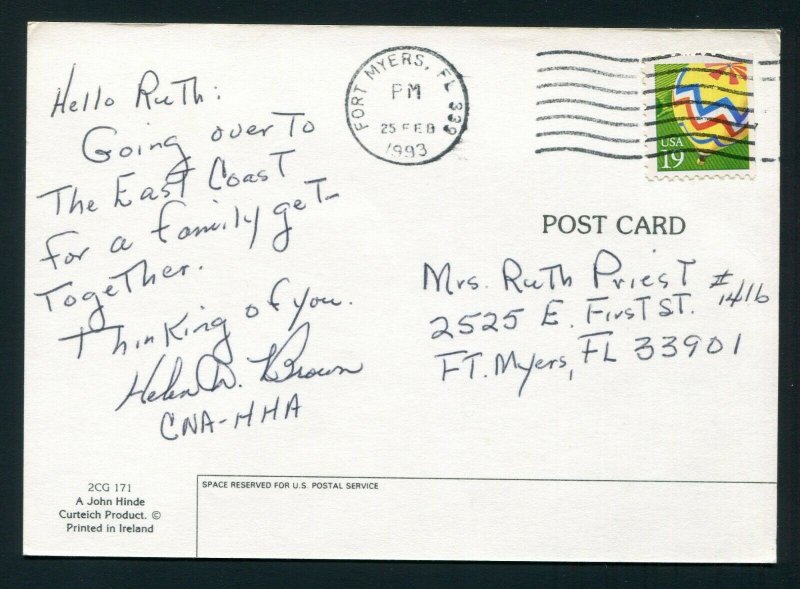 Hello Ruth:
Going over To
The East Coast
for a family get-
Together.
Thinking of you.
Helen W. Brown
CNA-HHA
FORT MYERS, FL 339
PM
25 FEB
1993
USA
19
POST CARD
Mrs. Ruth Priest #1416
2525 E. First ST.
FT. Myers, FL 33901
2CG 171
A John Hinde
Curteich Product. ©
Printed in Ireland
SPACE RESERVED FOR U.S. POSTAL SERVICE